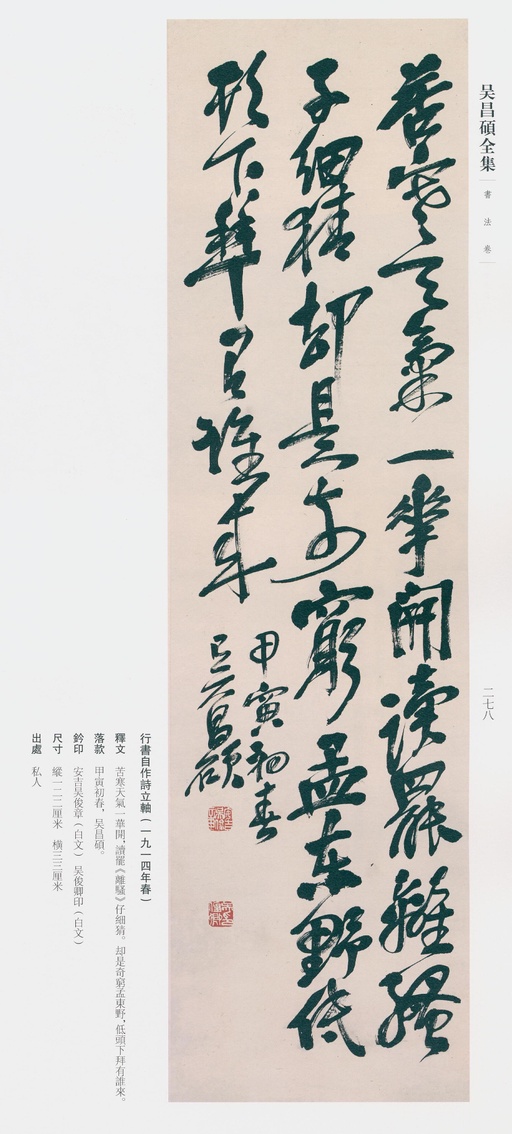 吴昌碩全集
書法卷
二七八
苦寒天氣一華開讀罷離騷
子細猜却是奇窮孟东野低
頭下拜有誰来
甲寅初春
吴昌碩
行書自作詩立軸（一九一四年春）
釋文 苦寒天氣一華開，讀罷《離騷》仔細猜。却是奇窮孟東野，低頭下拜有誰來。
落款 甲寅初春，吴昌碩。
鈐印 安吉吴俊章（白文） 吴俊卿印（白文）
尺寸 縱一二二厘米 橫三三厘米
出處 私人